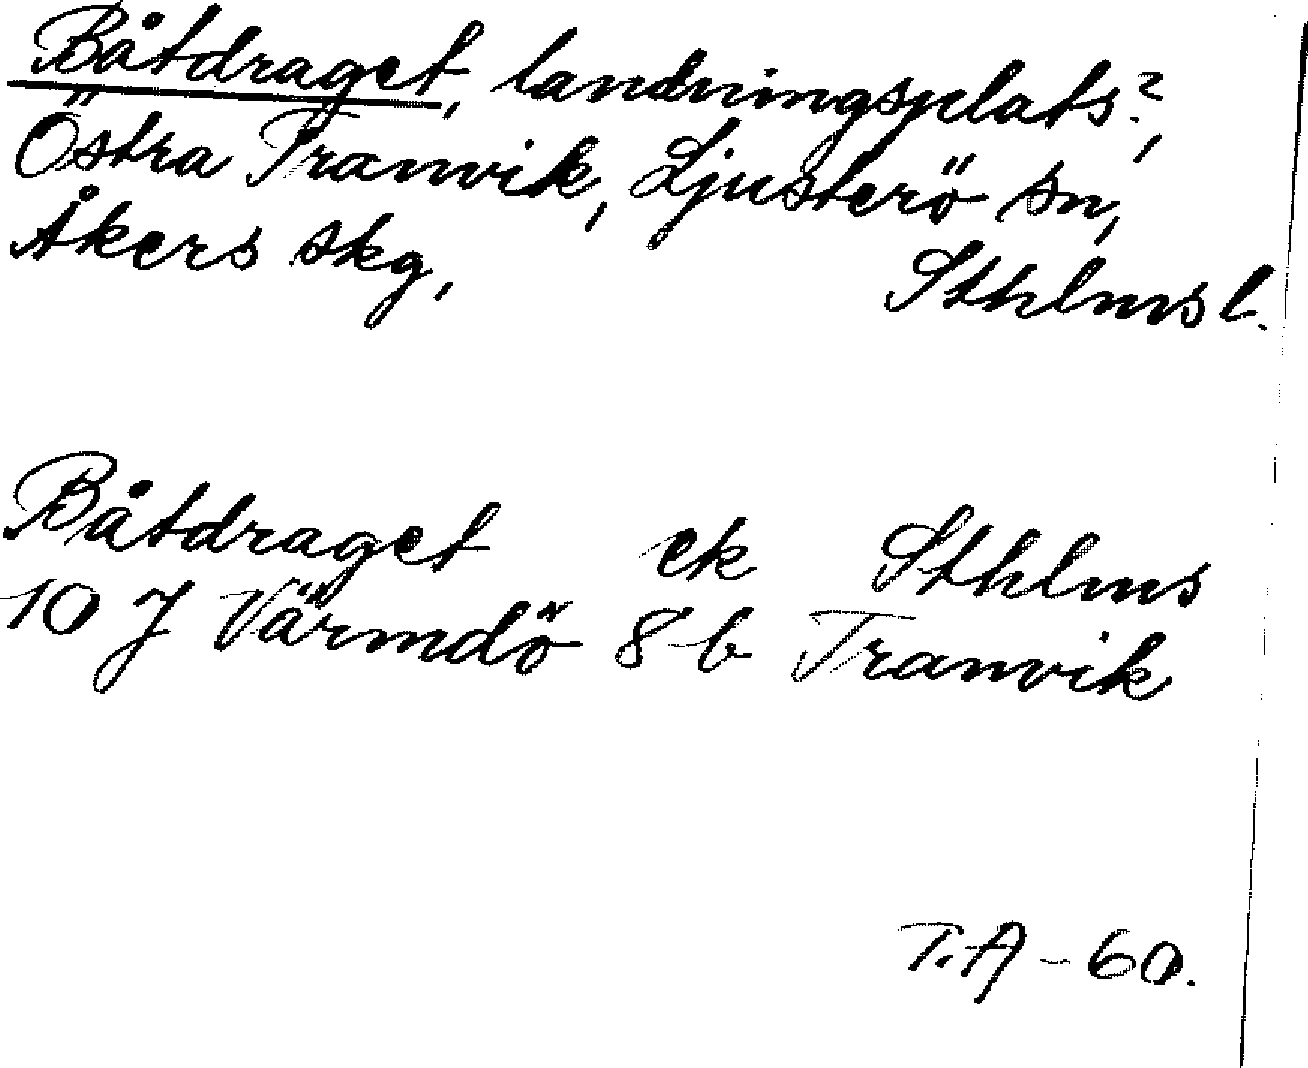 Båtdraget, landningsplats?,
Östra Tranvik, Ljusterö sn,
Åkers skg, Sthlms l.
Båtdraget ek Sthlms
10 J Värmdö 8 b Tranvik
T.A - 60.